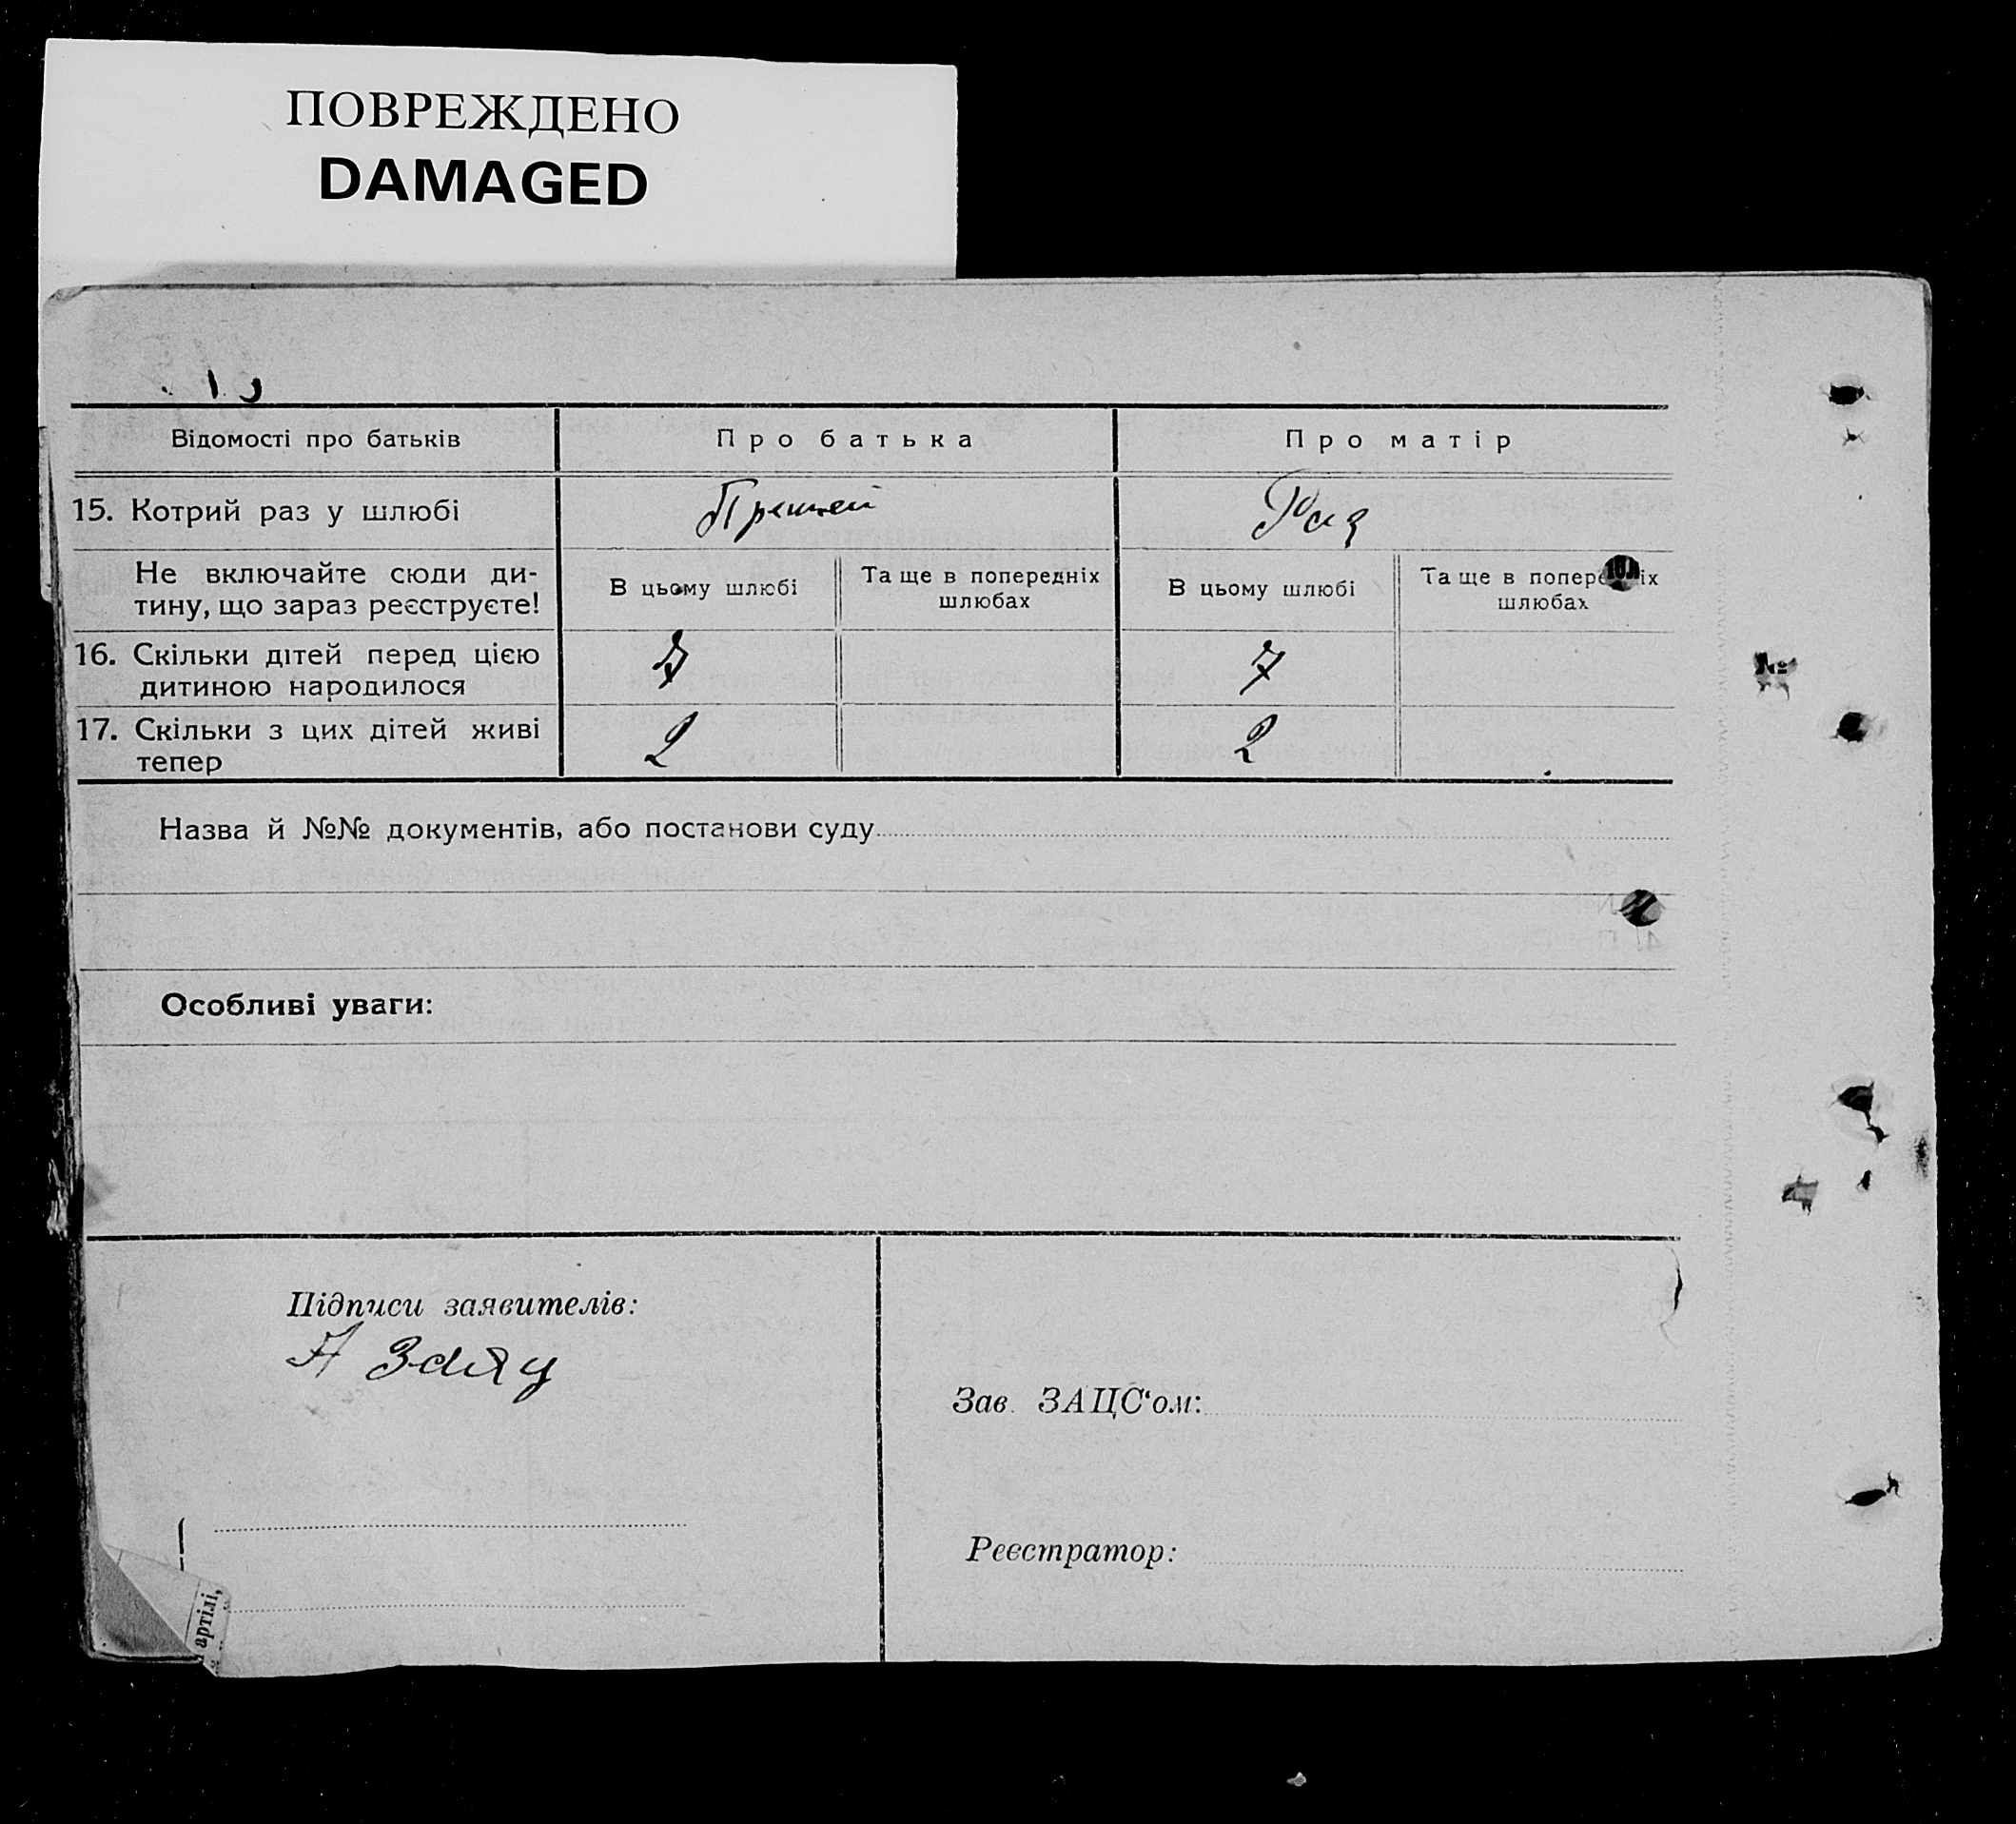 ПОВРЕЖДЕНО
DAMAGED
Відомості про батьків Про батька Про матір
15. Котрий раз у шлюбі Раз
Не включайте сюди ди-
тину, що зараз реєструєте!
В цьому шлюбі
Та ще в попередніх
шлюбах
В цьому шлюбі
Та ще в
шлюбах
16. Скільки дітей перед цією
дитиною народилося
7 7
17. Скільки з цих дітей живі
тепер
2 2
Назва й №№ документів, або постанови суду
Особливі уваги:
Підписи заявителів:
Зав. ЗАЦС'ом:
Реєстратор:
артілі,
№